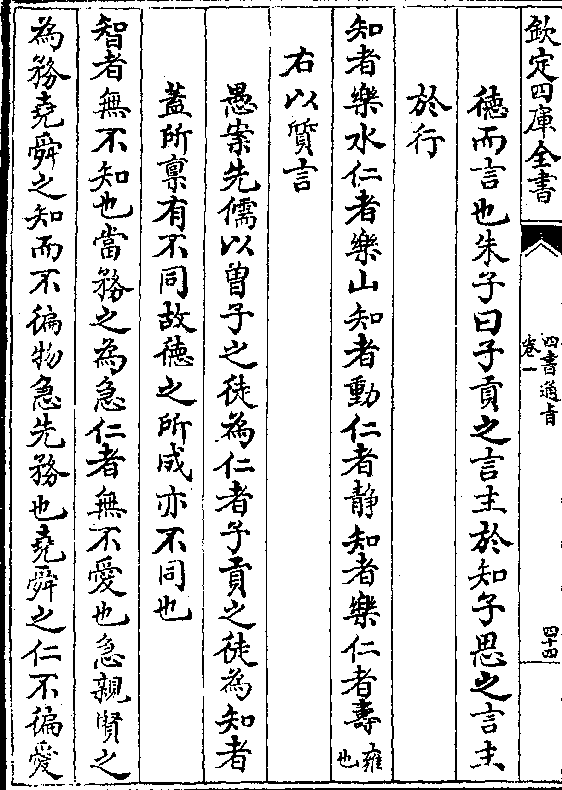 欽定四庫全書
四書通旨
卷一
四十四
德而言也朱子曰子貢之言主於知子思之言主
於行
知者樂水仁者樂山知者動仁者靜知者樂仁者壽雍也
右以質言
愚案先儒以曾子之徒為仁者子貢之徒為知者
蓋所稟有不同故德之所成亦不同也
智者無不知也當務之為急仁者無不愛也急親賢之
為務堯舜之知而不徧物急先務也堯舜之仁不徧愛